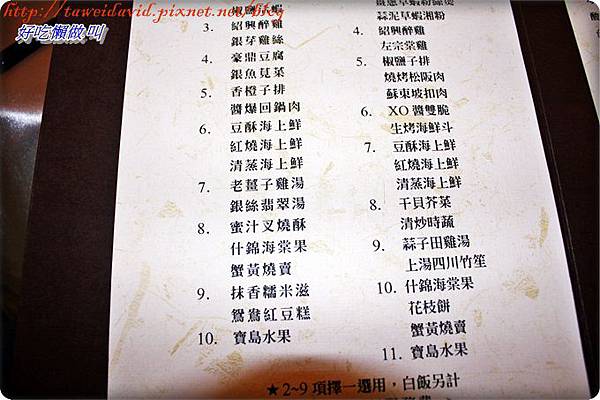 http://taweidavid.pixnet.net/blog
好吃懶做叫
椒鹽
3. 紹興醉雞
銀芽雞絲
4. 豪鼎豆腐
銀魚莧菜
5. 香橙子排
醬爆回鍋肉
6. 豆酥海上鮮
紅燒海上鮮
清蒸海上鮮
7. 老薑子雞湯
銀絲翡翠湯
8. 蜜汁叉燒酥
什錦海棠果
蟹黃燒賣
9. 抹香糯米滋
鴛鴦紅豆糕
10. 寶島水果
蒜泥草蝦湘粉
4. 紹興醉雞
左宗堂雞
5. 椒鹽子排
燒烤松阪肉
蘇東坡扣肉
6. XO 醬雙脆
生烤海鮮斗
7. 豆酥海上鮮
紅燒海上鮮
清蒸海上鮮
8. 干貝芥菜
清炒時蔬
9. 蒜子田雞湯
上湯四川竹笙
10. 什錦海棠果
花枝餅
蟹黃燒賣
11. 寶島水果
★ 2~9 項擇一選用，白飯另計